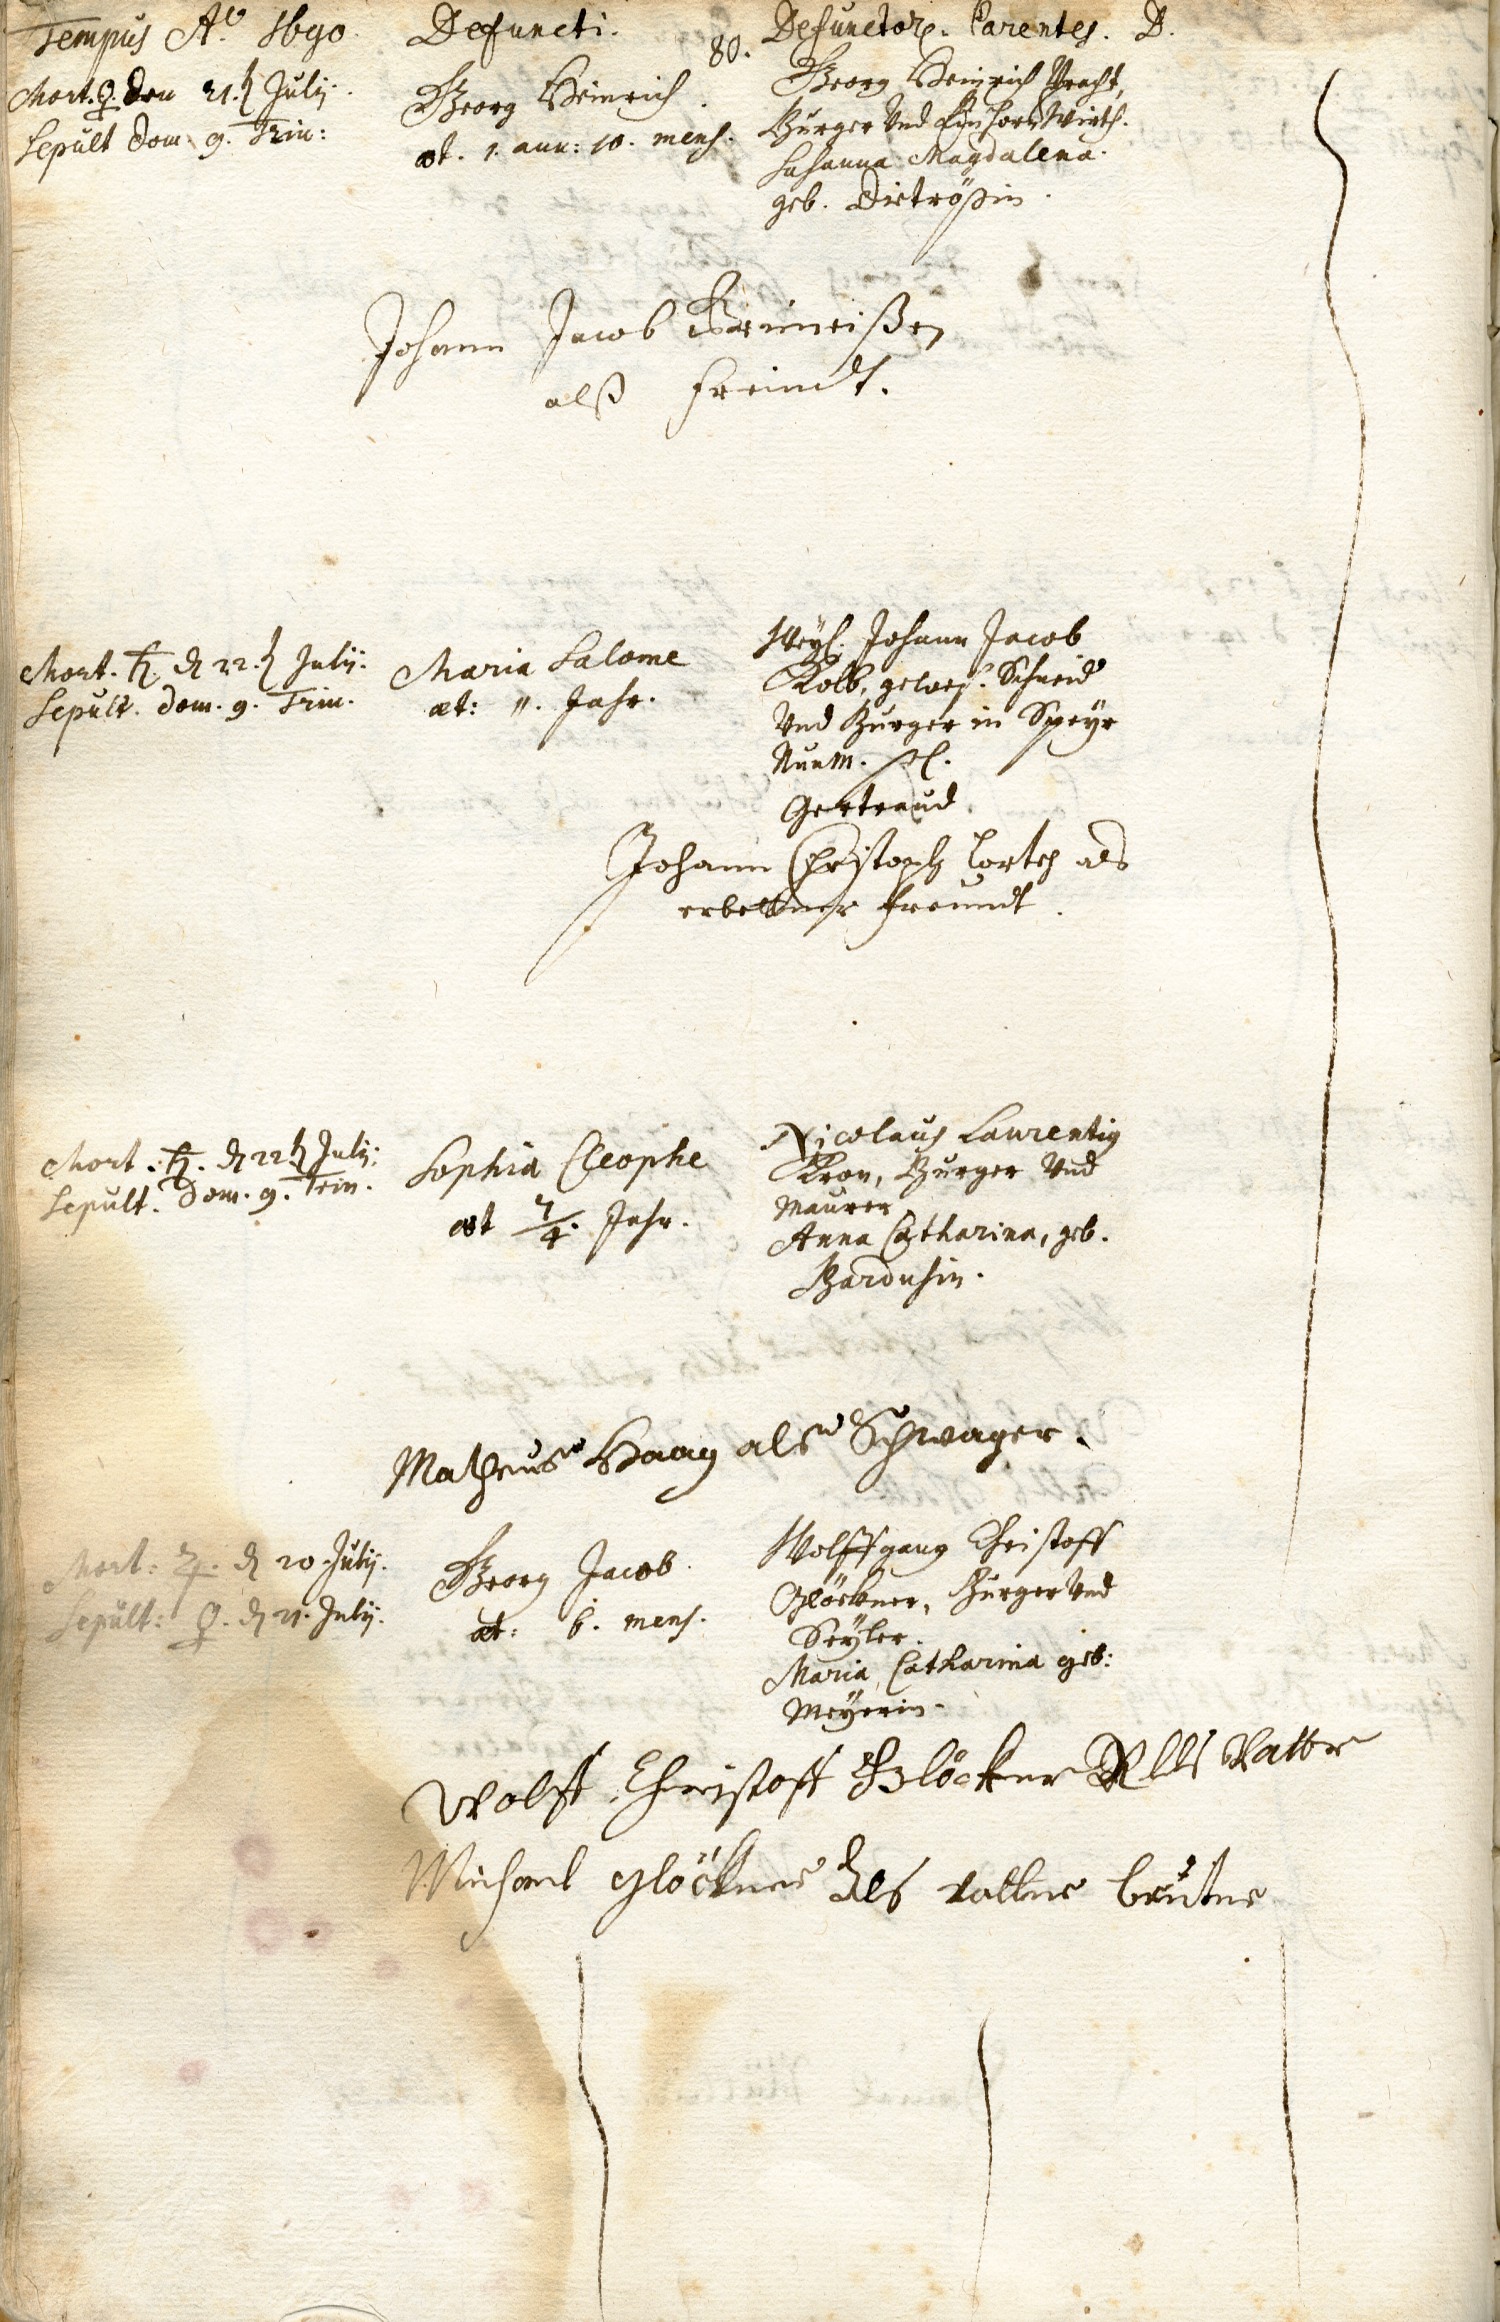 Tempus Aº 1690. Defuncti. 80. Defunctor. Parentes. D.
Mort. ♀ den 21. July.
Sepult Dom. 9. Trin:
Georg Heinrich.
æt. 1. ann: 10. mens.
Georg Heinrich Pracht,
Burger Und Einhorn Wirth.
Susanna Magdalena.
geb. Dietrößin.
Johann Jacob
alß Freindt.
Mort. ♄ d 22. July:
Sepult. Dom. 9. Trin.
Maria Salome
æt: 11. Jahr.
Weyl. Johann Jacob
Kolb, geweß. Schneid
Und Burger in Speyr
Nunm. sel.
Gertraud.
Johann Christoph Lortz als
erbettner Freundt.
Mort. ♄. d 22 July:
Sepult. Dom. 9. Trin.
Sophia Cleophe
æt 7/4. Jahr.
Nicolaus Laurentig
Kron, Burger Und
Maurer
Anna Catharina, geb.
Bardusin.
Matheus Haag als Schwager.
Mort: ♃. d 20. July.
Sepult: ♀. d 21. July.
Georg Jacob.
æt: 6. mens.
Wolffgang Christoff
Glöckner, Burger Und
Seyler.
Maria Catharina geb:
Meyerin.
Wolff Christoff Glöckner Alls Vatter
Michael Glöckner Als Vatters bruder